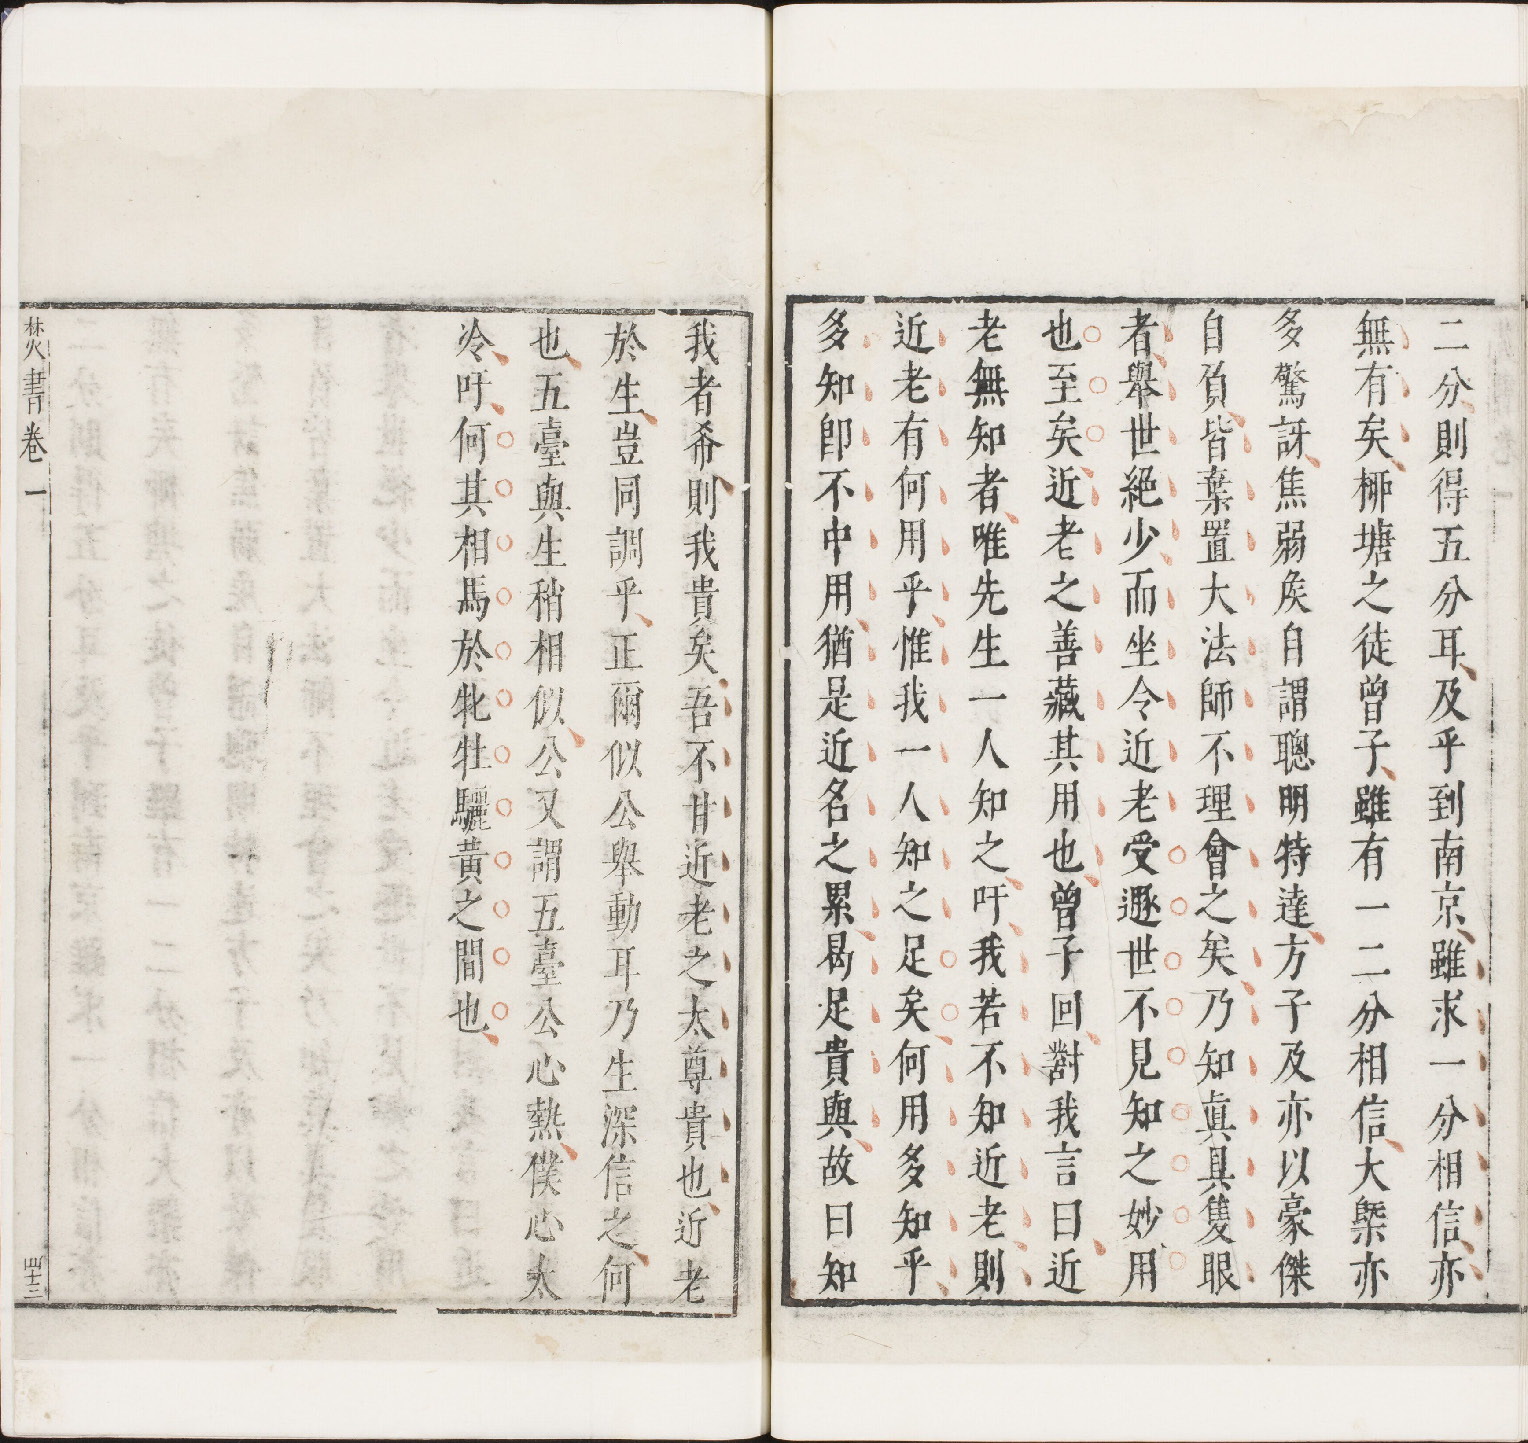 二分則得五分耳及乎到南京雖求一分相信亦
無有矣栁塘之徒曾子雖有一二分相信大槩亦
多驚訝焦弱矦自謂聰明特達方子及亦以豪傑
自負皆棄置大法師不理會之矣乃知眞具隻眼
者舉世絕少而坐令近老受遯世不見知之妙用
也至矣近老之善藏其用也曾子回對我言曰近
老無知者唯先生一人知之吁我若不知近老則
近老有何用乎惟我一人知之足矣何用多知乎
多知卽不中用猶是近名之累曷足貴與故曰知
我者希則我貴矣吾不甘近老之太尊貴也近老
於生豈同調乎正爾似公舉動耳乃生深信之何
也五臺與生稍相似公又謂五臺公心熱僕心太
冷吁何其相馬於牝牡驪黃之間也
焚書卷一
四十三